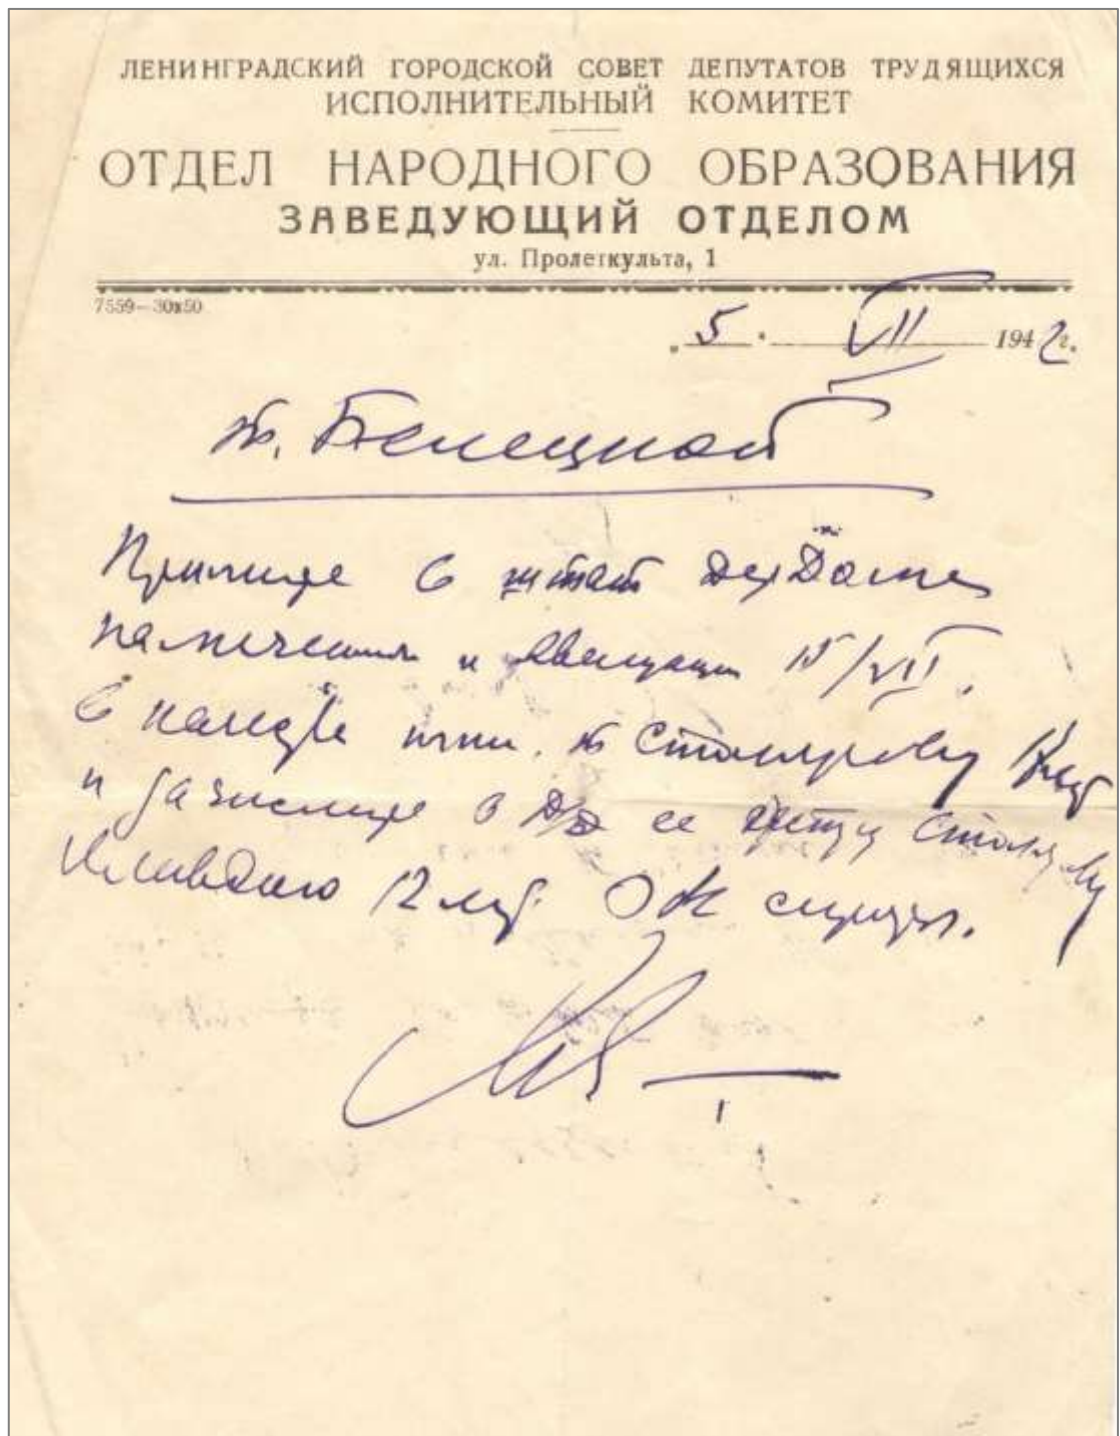 ЛЕНИНГРАДСКИЙ ГОРОДСКОЙ СОВЕТ ДЕПУТАТОВ ТРУДЯЩИХСЯ
ИСПОЛНИТЕЛЬНЫЙ КОМИТЕТ
ОТДЕЛ НАРОДНОГО ОБРАЗОВАНИЯ
ЗАВЕДУЮЩИЙ ОТДЕЛОМ
ул. Пролеткульта, 1
7559—30х50
„5" VII 1942г.
т. Белецкой
Примите в штат ДетДома
намечен к эвакуации 15/VII.
в т. Столярову
и зачислите в Д/Д ее Столярову
12 лет.